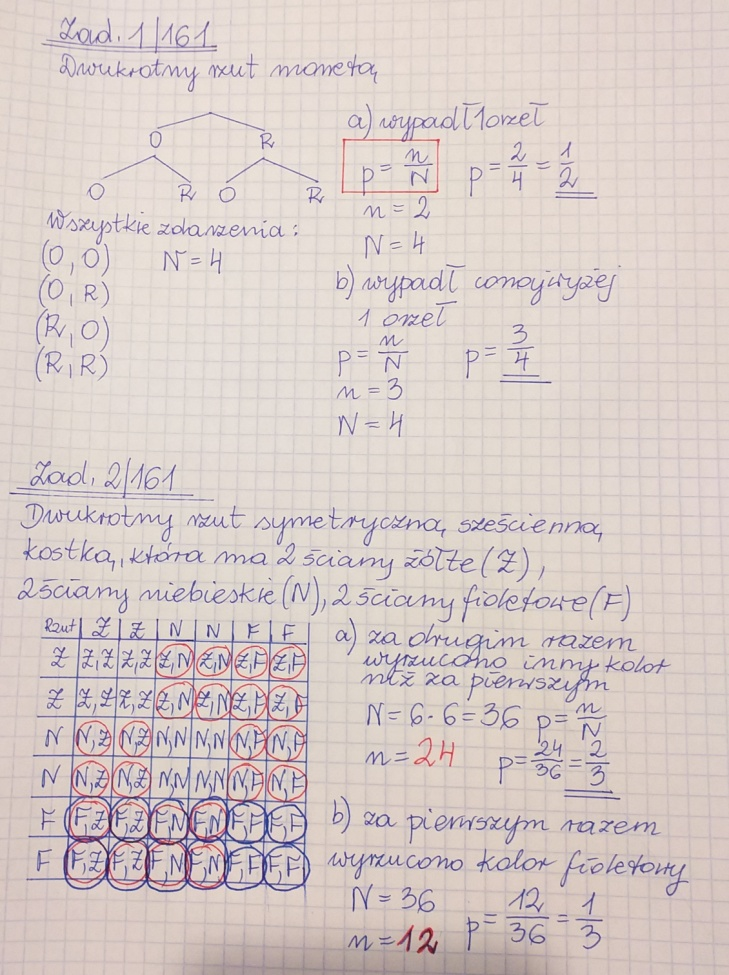 Zad. 1/161
Dwukrotny rzut monetą
O R
O R O R
Wszystkie zdarzenia:
(O, O) N = 4
(O, R)
(R, O)
(R, R)
a) wypadł 1 orzeł
p = n/N p = 2/4 = 1/2
n = 2
N = 4
b) wypadł conajwyżej
1 orzeł
p = n/N p = 3/4
n = 3
N = 4
Zad. 2/161
Dwukrotny rzut symetryczną sześcienną
kostką, która ma 2 ściany żółte (Ż),
2 ściany niebieskie (N), 2 ściany fioletowe (F)
Rzut Ż Ż N N F F
Ż Ż,Ż Ż,Ż Ż,N Ż,N Ż,F Ż,F
Ż Ż,Ż Ż,Ż Ż,N Ż,N Ż,F Ż,F
N N,Ż N,Ż N,N N,N N,F N,F
N N,Ż N,Ż N,N N,N N,F N,F
F F,Ż F,Ż F,N F,N F,F F,F
F F,Ż F,Ż F,N F,N F,F F,F
a) za drugim razem
wyrzucono inny kolor
niż za pierwszym
N = 6 · 6 = 36 p = n/N
n = 24 p = 24/36 = 2/3
b) za pierwszym razem
wyrzucono kolor fioletowy
N = 36
n = 12 p = 12/36 = 1/3